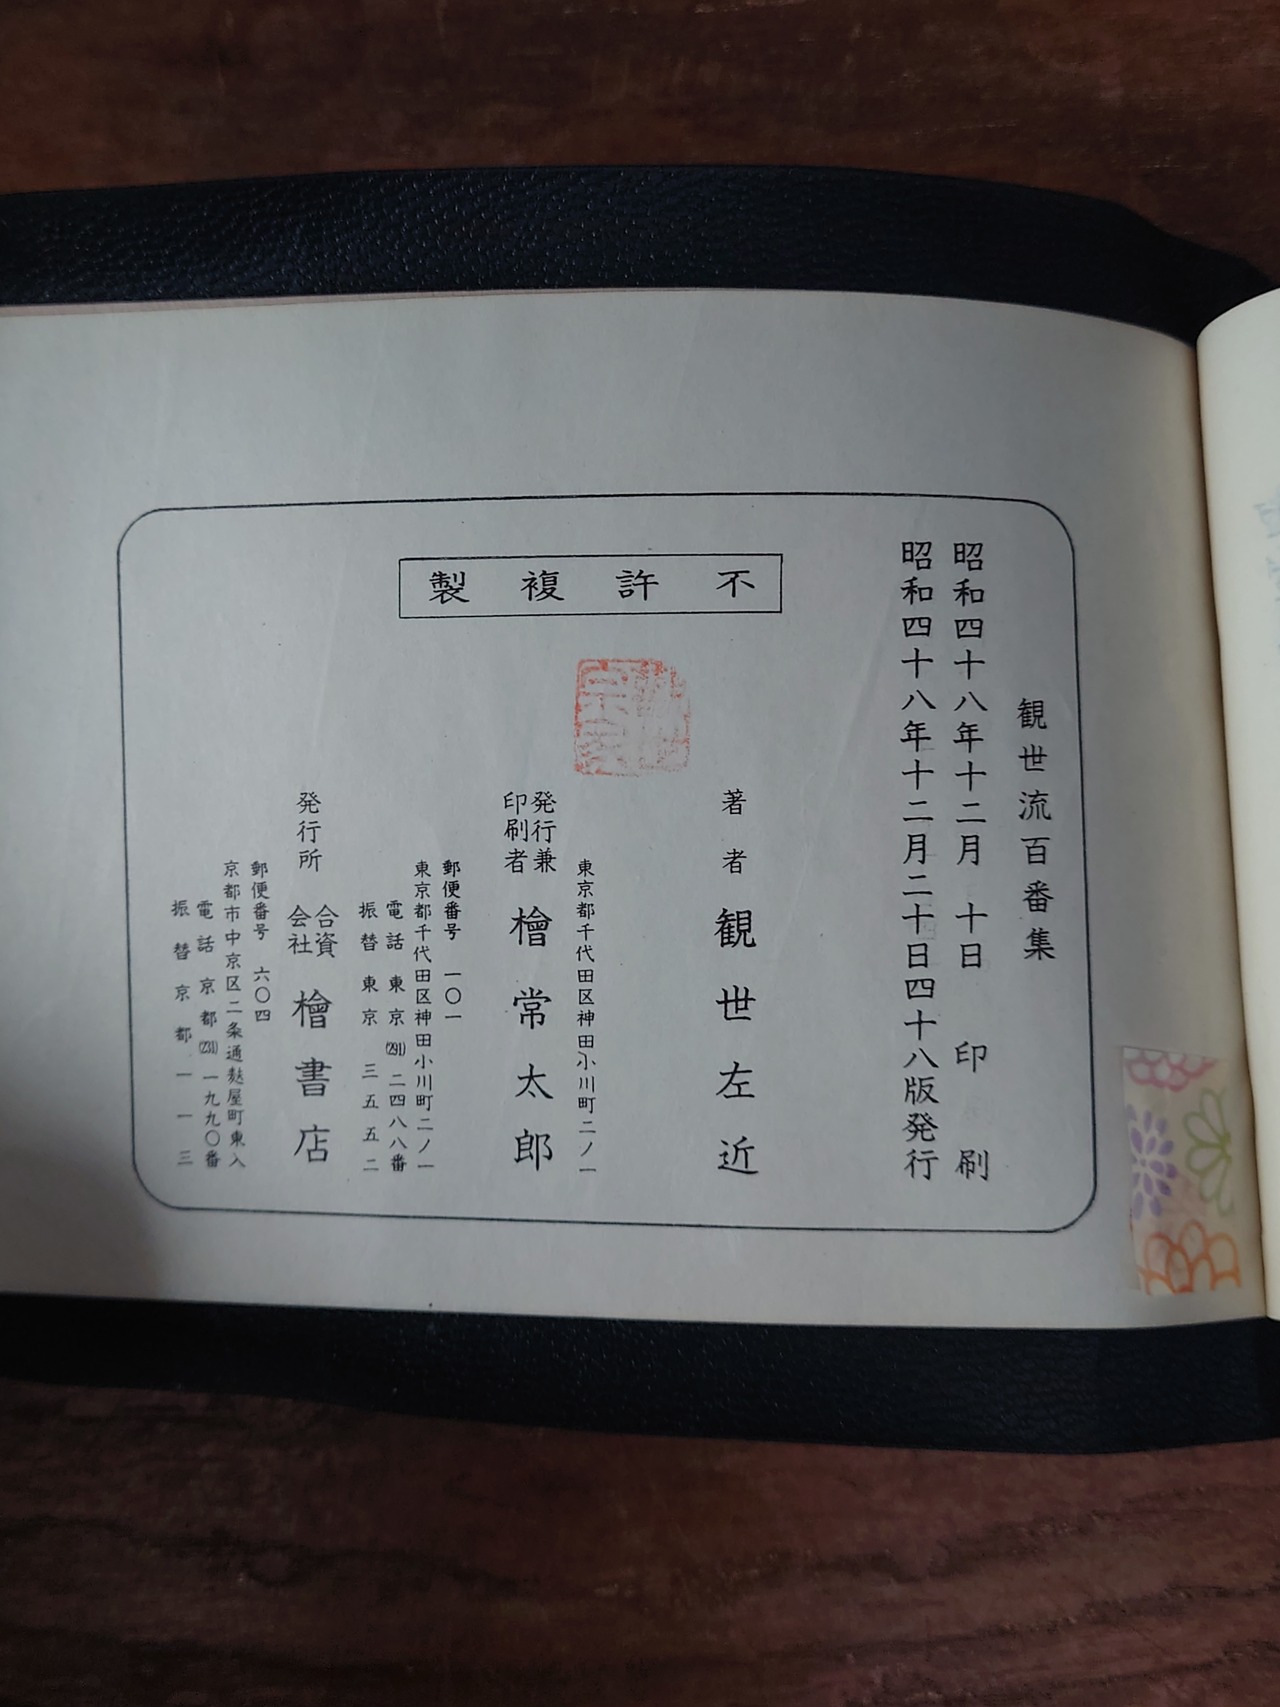 観世流百番集
昭和四十八年十二月 十日 印 刷
昭和四十八年十二月二十日四十八版発行
不許複製
著者 観世左近
東京都千代田区神田小川町二ノ一
発行兼
印刷者
檜常太郎
郵便番号 一〇一
東京都千代田区神田小川町二ノ一
電話東京(291)二四八八番
振替東京三五五二
発行所
合資
会社
檜書店
郵便番号 六〇四
京都市中京区二条通麩屋町東入
電話京都(231)一九九〇番
振替京都一一三